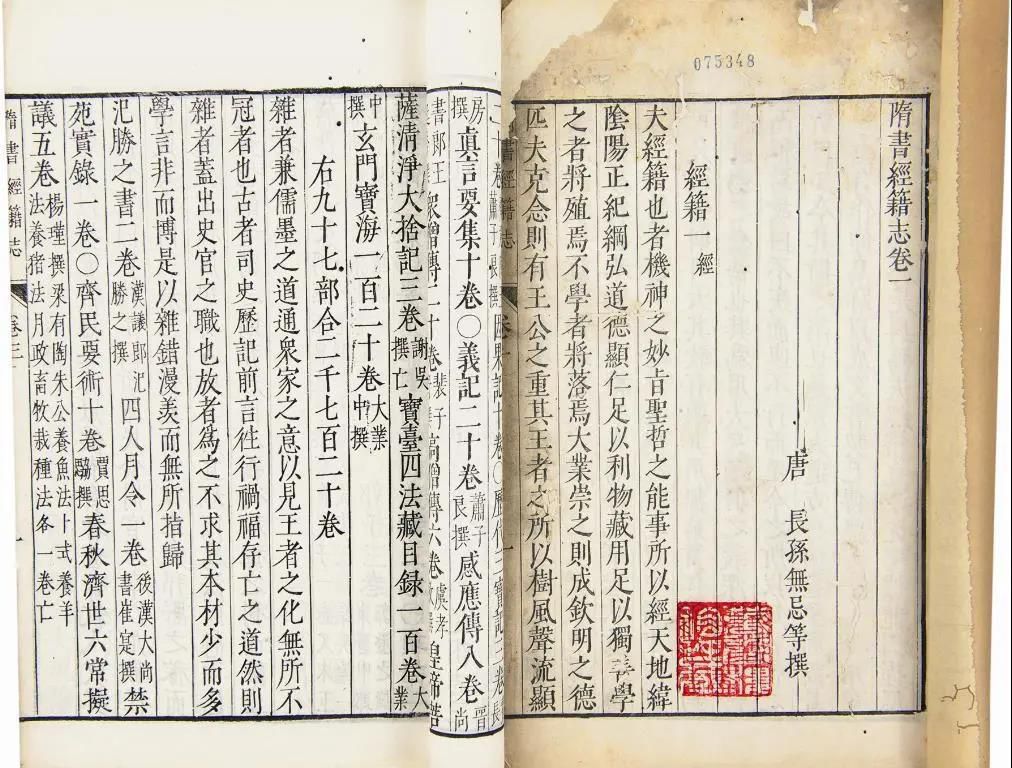 075348
隋書經籍志卷一
唐 長孫無忌等撰
經籍一 經
夫經籍也者機神之妙旨聖哲之能事所以經天地緯
隂陽正紀綱弘道德顯仁足以利物藏用足以獨善學
之者將殖焉不學者將落焉大業崇之則成欽明之德
匹夫克念則有王公之重其王者之所以樹風聲流顯
書經籍志
房撰眞言要集十卷〇義記二十卷蕭子良撰感應傳八卷晉尚
書郎王 衆僧傳二十卷裴子 高僧傳六卷虞孝 皇帝菩
薩清淨大捨記三卷謝吳撰亡寶臺四法藏目録一百卷大業
中撰玄門寶海一百二十卷大業中撰
右九十七部合二千七百二十卷
雜者兼儒墨之道通衆家之意以見王者之化無所不
冠者也古者司史歷記前言徃行禍福存亡之道然則
雜者蓋出史官之職也放者爲之不求其本材少而多
學言非而博是以雜錯漫羨而無所指歸
氾勝之書二卷漢議郎氾勝之撰四人月令一卷後漢大尚書崔寔撰禁
苑實錄一卷〇齊民要術十卷賈思勰撰春秋濟世六常擬
議五卷楊瑾撰梁有陶朱公養魚法卜式養羊法養猪法月政畜牧栽種法各一卷亡
隋書經籍志 卷三